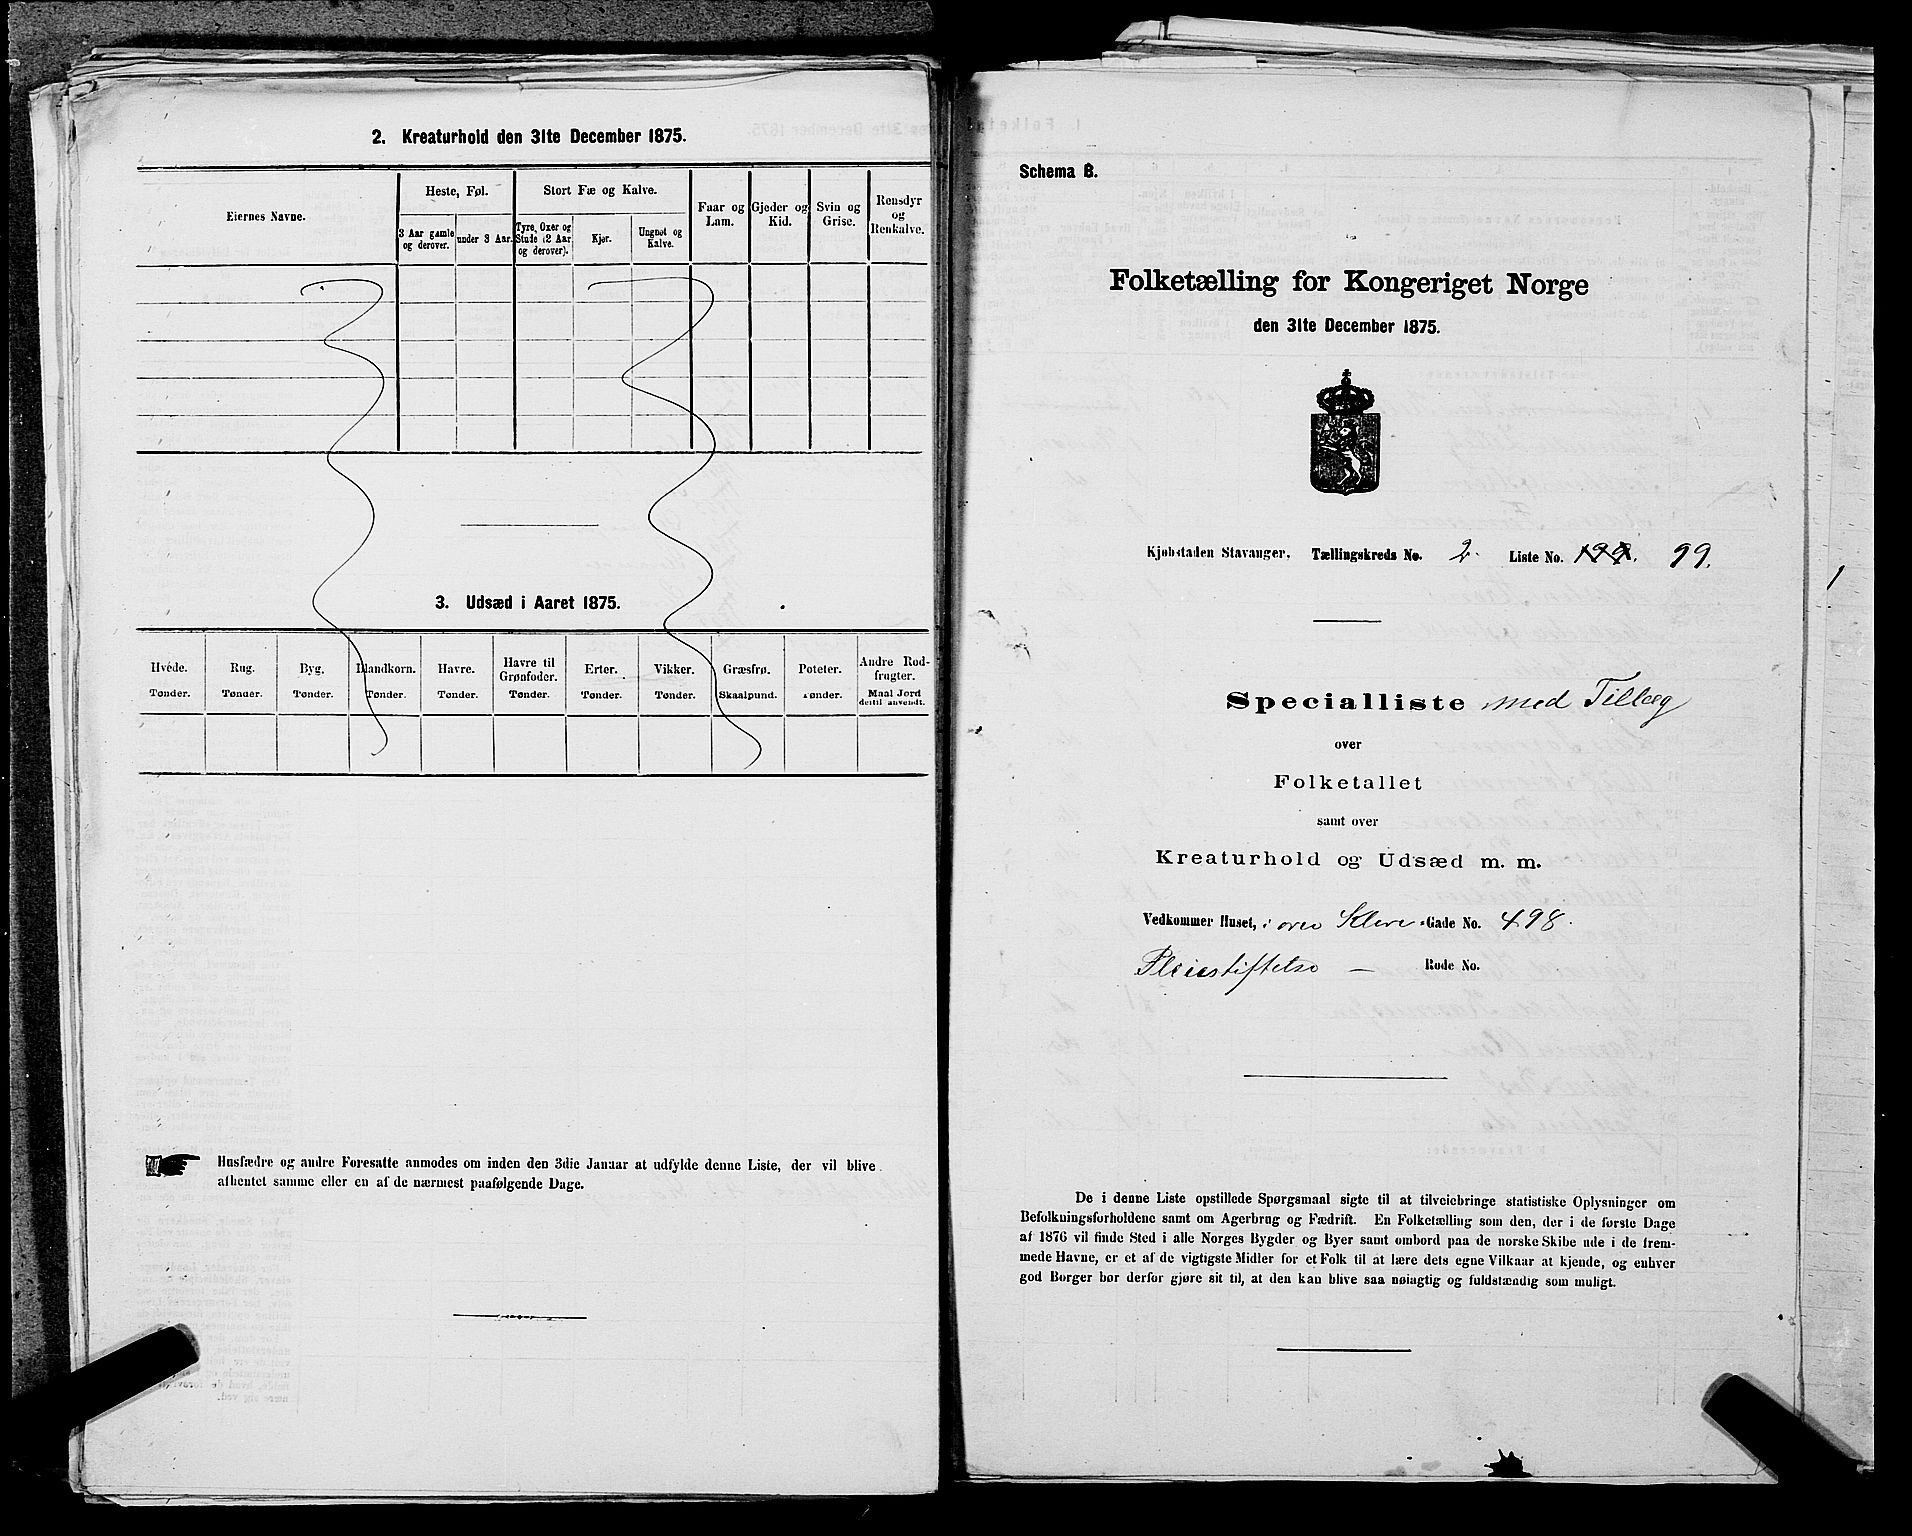 2. Kreaturhold den 31te December 1875.
Eiernes Navne.
Heste, Føl.
Stort Fæ og Kalve.
Faar og Lam.
Gjeder og Kid.
Svin og Grise.
Rensdyr og Renkalve.
3 Aar gamle og derover.
under 3 Aar.
Tyre, Oxer og Stude (2 Aar og derover).
Kjør.
Ungnøt og Kalve.
3. Udsæd i Aaret 1875.
Hvede. Tønder.
Rug. Tønder.
Byg. Tønder.
Blandkorn. Tønder.
Havre. Tønder.
Havre til Grønfoder. Tønder.
Erter. Tønder.
Vikker. Tønder.
Græsfrø. Skaalpund.
Poteter. Tønder.
Andre Rodfrugter. Maal Jord dertil anvendt.
Husfædre og andre Foresatte anmodes om inden den 3die Januar at udfylde denne Liste, der vil blive
afhentet samme eller en af de nærmest paafølgende Dage.
Schema B.
Folketælling for Kongeriget Norge
den 31te December 1875.
Kjøbstaden Stavanger. Tællingskreds No. 2. Liste No. 99.
Specialliste med Tillæg
over
Folketallet
samt over
Kreaturhold og Udsæd m. m.
Vedkommer Huset, i øvre Kleve Gade No. 498.
Pleiestiftelse — Rode No.
De i denne Liste opstillede Spørgsmaal sigte til at tilveiebringe statistiske Oplysninger om
Befolkningsforholdene samt om Agerbrug og Fædrift. En Folketælling som den, der i de første Dage
af 1876 vil finde Sted i alle Norges Bygder og Byer samt ombord paa de norske Skibe ude i de frem-
mede Havne, er et af de vigtigste Midler for et Folk til at lære dets egne Vilkaar at kjende, og enhver
god Borger bør derfor gjøre sit til, at den kan blive saa nøiagtig og fuldstændig som muligt.